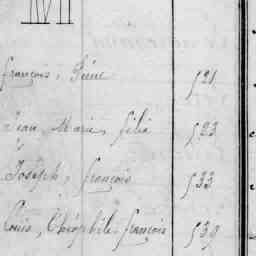 françois, Séne 521
Jean, Marie, félix 523
Joseph, françois 533
Louis, Théophile, françois 539